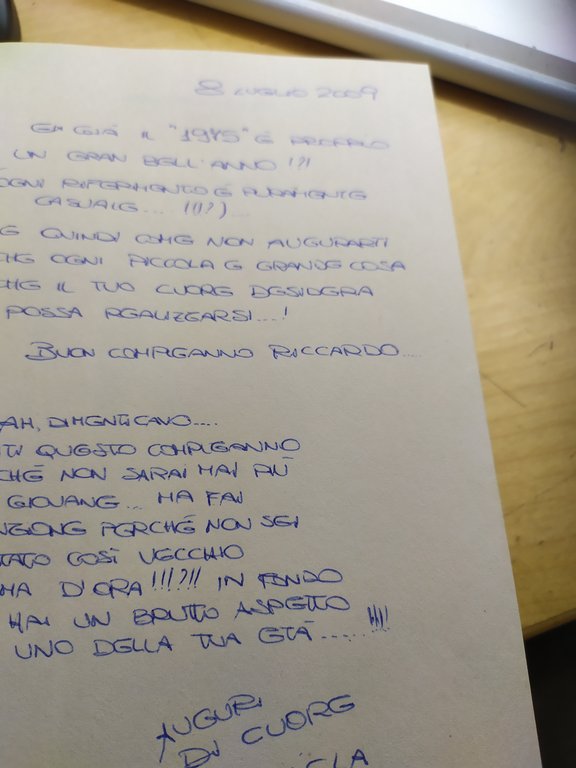 8 LUGLIO 2009
EH GIÀ IL "1975" È PROPRIO
UN GRAN BELL'ANNO!?!
OGNI RIFERIMENTO È PURAMENTE
CASUALE.... (!!?)...
E QUINDI COME NON AUGURARTI
CHE OGNI PICCOLA E GRANDE COSA
CHE IL TUO CUORE DESIDERA
POSSA REALIZZARSI....!
BUON COMPLEANNO RICCARDO....
AH, DIMENTICAVO....
QUESTO COMPLEANNO
CHÉ NON SARAI MAI PIÙ
GIOVANE... MA FAI
NZIONE PERCHÉ NON SEI
TATO COSÌ VECCHIO
MA D'ORA!!!?!! IN FONDO
HAI UN BRUTTO ASPETTO
UNO DELLA TUA ETÀ.....!!!!
AUGURI
DI CUORE